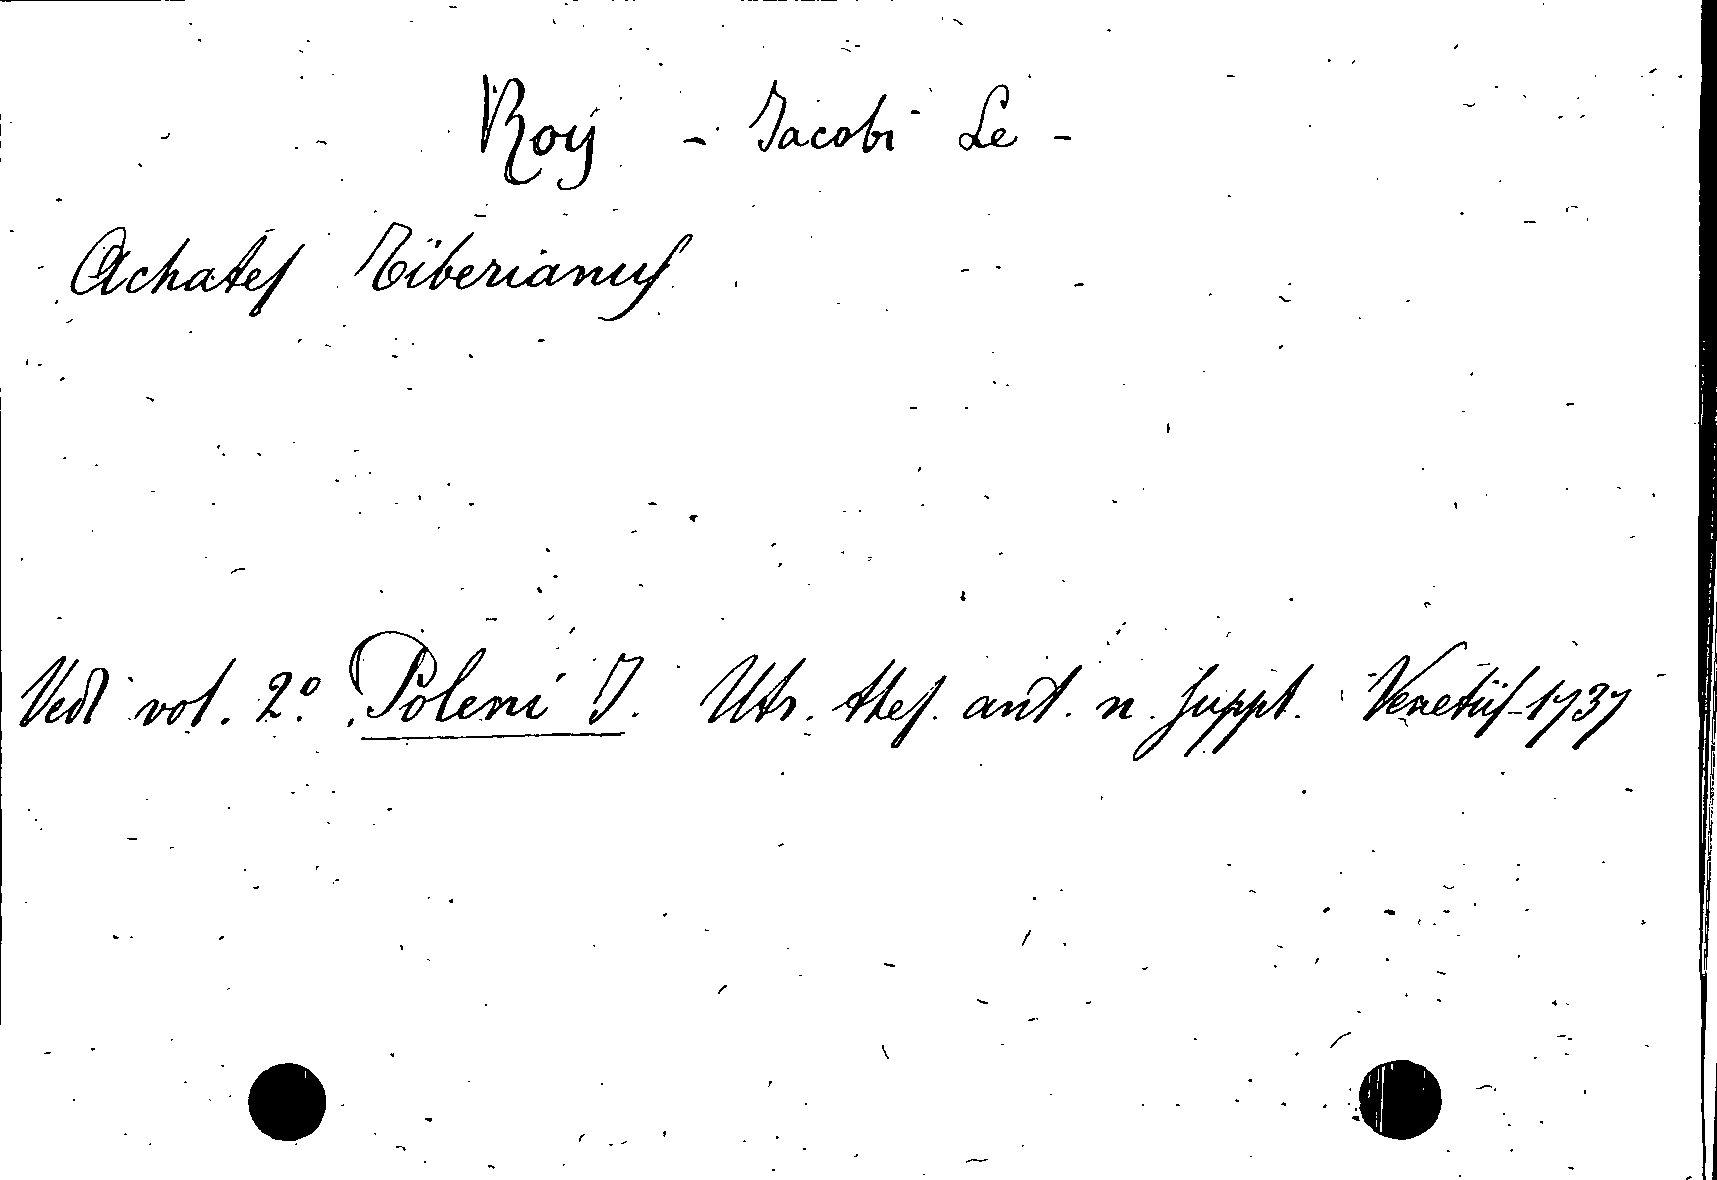 Roÿ - Jacobi Le -
Achates Tiberianus
Vedi vol. 2º. Poleni J. Utr. thes. ant. n. suppt. Venetiis 1737